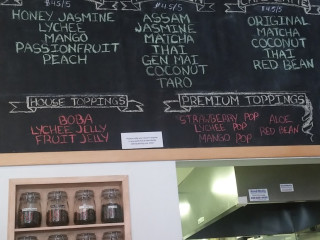 $4.5/5
HONEY JASMINE
LYCHEE
MANGO
PASSIONFRUIT
PEACH
$4.5/5
ASSAM
JASMINE
MATCHA
THAI
GEN MAI
COCONUT
TARO
$5/5
ORIGINAL
MATCHA
COCONUT
THAI
RED BEAN
HOUSE TOPPINGS
BOBA
LYCHEE JELLY
FRUIT JELLY
PREMIUM TOPPINGS
STRAWBERRY POP
LYCHEE POP
MANGO POP
ALOE
RED BEAN